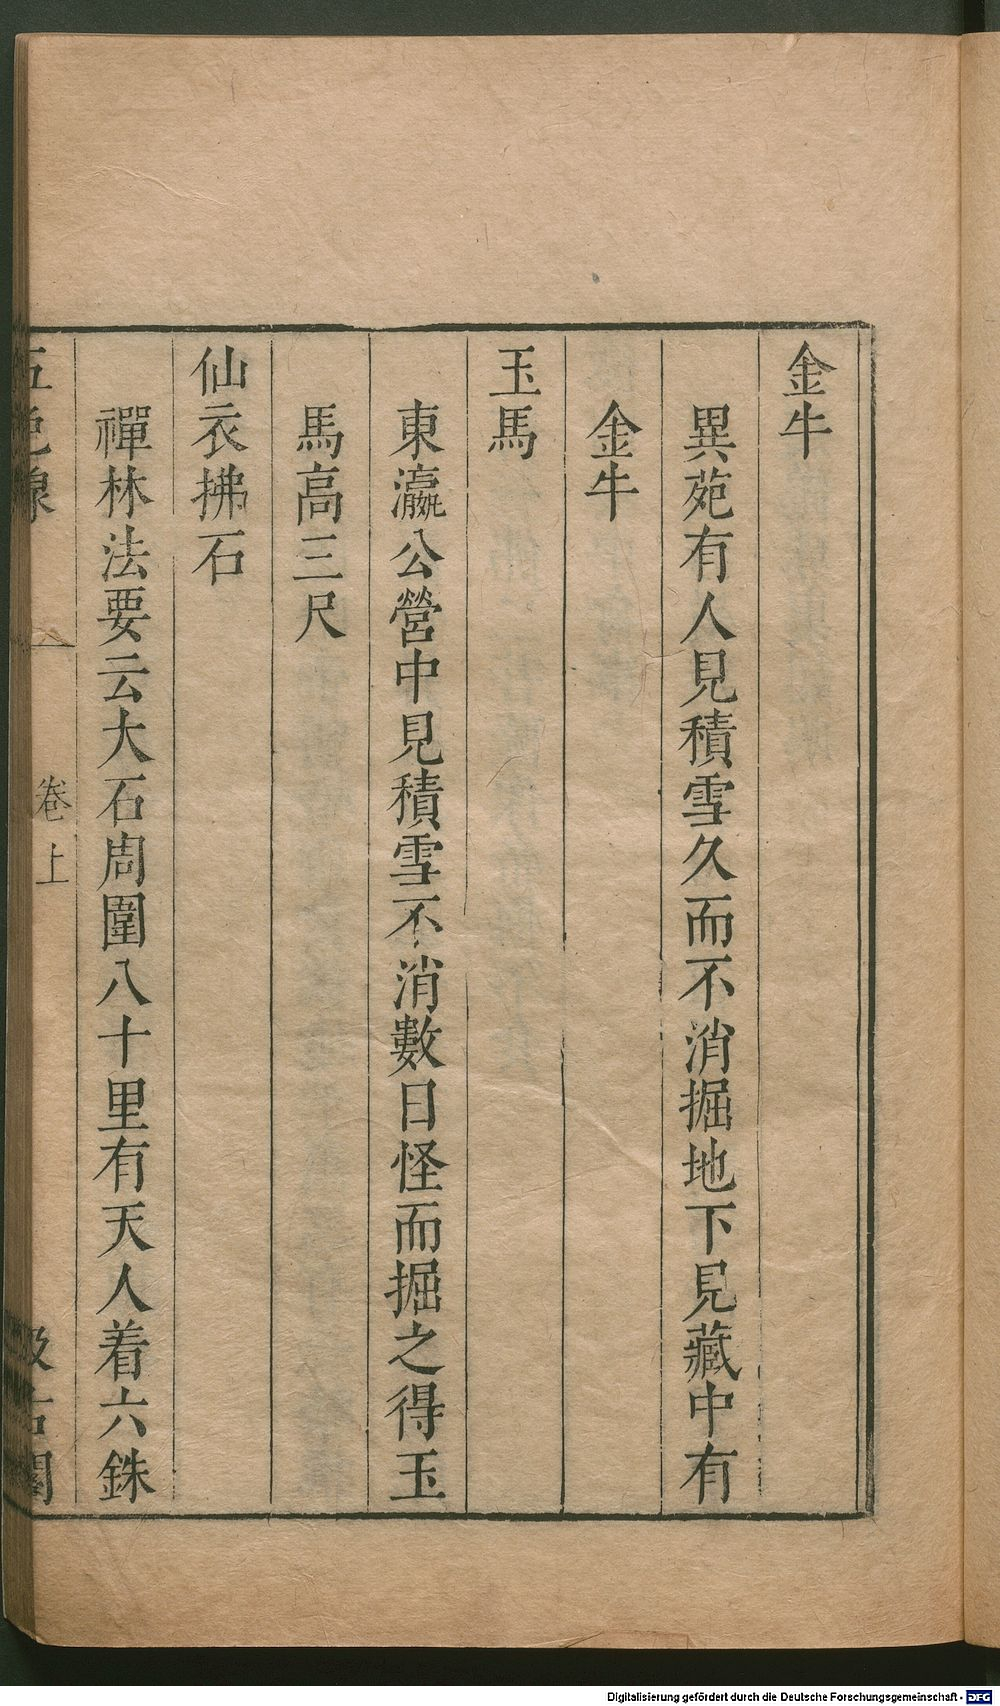 金牛
異苑有人見積雪久而不消掘地下見藏中有
金牛
玉馬
東瀛公營中見積雪不消數日怪而掘之得玉
馬高三尺
仙衣拂石
禪林法要云大石周圍八十里有天人着六銖
五色線 卷上 汲古閣
Digitalisierung gefördert durch die Deutsche Forschungsgemeinschaft - DFG